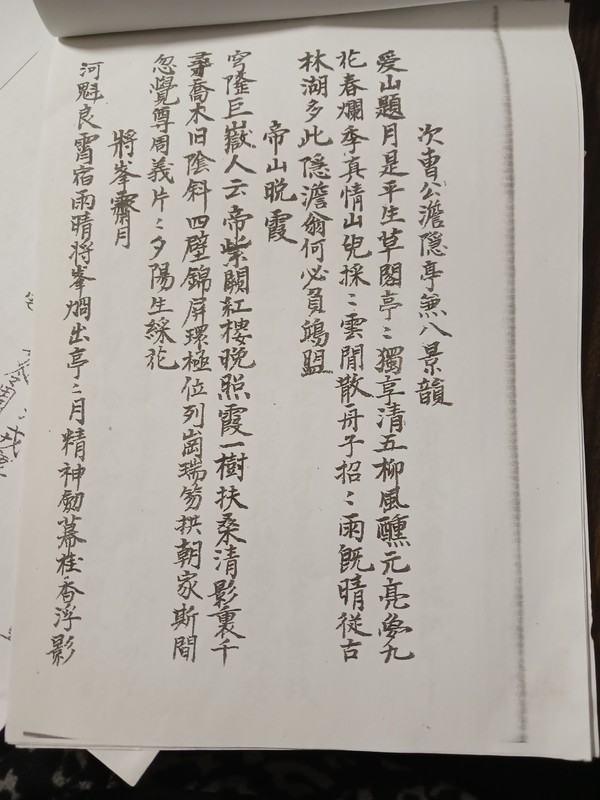 次曹公澹隱亭兼八景韻
愛山題月是平生草閣亭〻獨享清五柳風醺元亮夢九
花春爛季真情山兒採〻雲閒散舟子招〻雨旣晴從古
林湖多此隱澹翁何必負鴻盟
帝山晩霞
穹隆巨嶽人云帝紫闕紅樓晩照霞一樹扶桑淸影裏千
尋喬木旧陰斜四壁錦屛環極位列崗瑞笏拱朝家斯間
忽覺尊周義片〻夕陽生綵花
將峯霽月
河魁良宵宿雨晴將峯烱出亭〻月精神劒幕桂香浮影